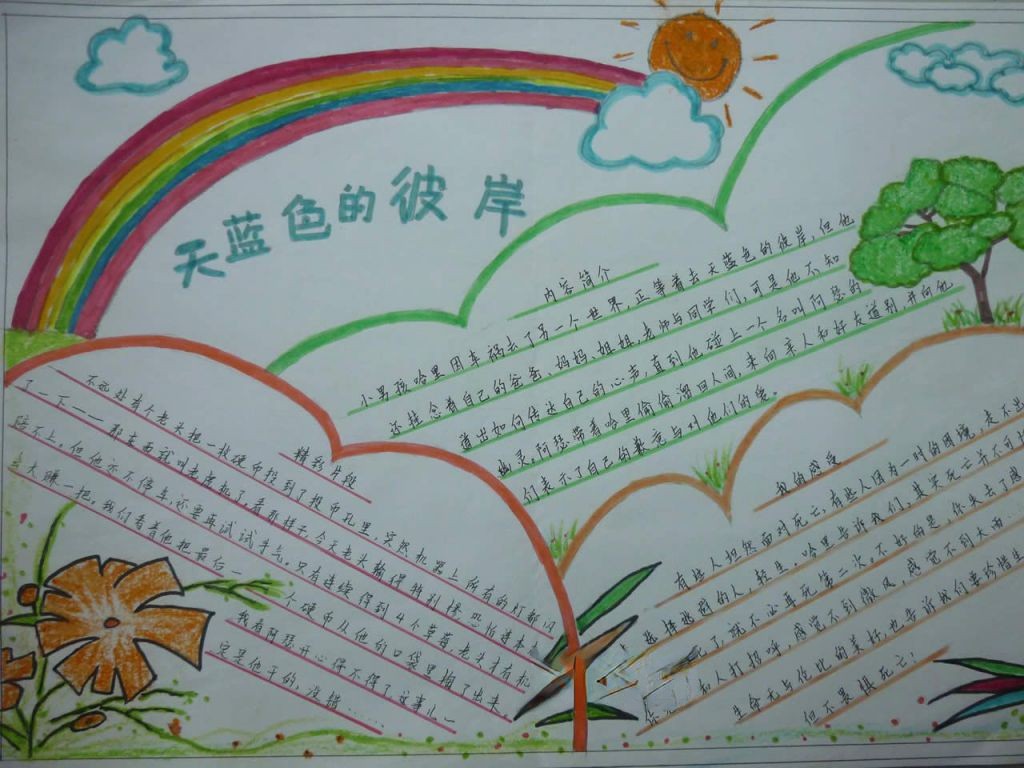 天蓝色的彼岸
内容简介
小男孩哈里因车祸去了另一个世界,正等着去天蓝色的彼岸,但他
还挂念着自己的爸爸、妈妈、姐姐,老师与同学们,可是他不知
道出如何传达自己的心声,直到他碰上一个名叫阿瑟的
幽灵,阿瑟带着哈里偷偷溜回人间,来向亲人和好友道别,并向他
们表示了自己的歉意与对他们的爱。
精彩片段
不远处有个老头把一枚硬币投到了投币孔里,突然机器上所有的灯都闪
了一下——那东西就叫老虎机了,看那样子,今天老头输得特别惨,恐怕连本
陪不上,但他亦不停车,还要再试试手气。只有连续得到4个草莓,老头才有机
会大赚一把,我们看着他把最后一
个硬币从他的口袋里掏了出来。
我看阿瑟开心得不得了,这事儿一
定是他干的,没错……
我的感受
有些人坦然面对死亡,有些人因为一时的困境,走不出
选择逃避的人,轻生,哈里告诉我们,其实死亡并不可怕
死了,就不必再死第二次。不好的是,你失去了感
和人打招呼,感觉不到微风,感觉不到大雨……
生命无与伦比的美好,也告诉我们要珍惜生
但不是惧死亡!